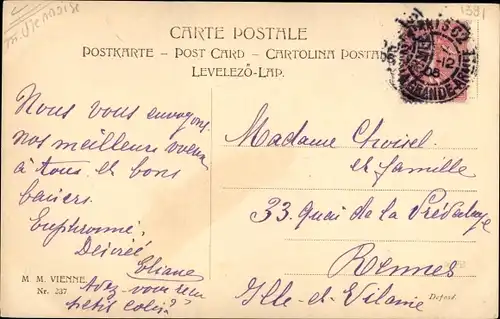 m. Viennoise
1391
CARTE POSTALE
POSTKARTE - POST CARD - CARTOLINA POSTALE
LEVELEZŐ-LAP.
PARIS
12
06
GRANDE-ARMÉE
Nous vous envoyons
nos meilleurs voeux
à tous et bons
baisers.
Euphronné,
Désirée
Eliane
Avez-vous reçu
petit colis?
Madame Choisel
et famille
33. Quai de la Prévalaye
Rennes
Ille-et-Vilaine
M. M. VIENNE
Nr. 237
Déposé.